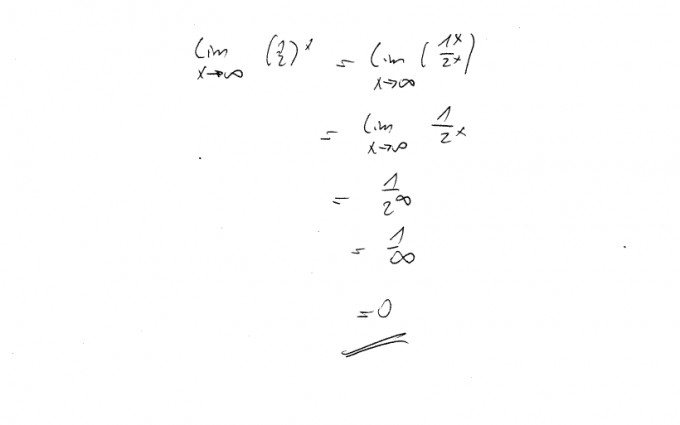 lim x→∞ (1/2)^x = lim x→∞ (1^x/2^x)
= lim x→∞ 1/2^x
= 1/2^∞
= 1/∞
= 0